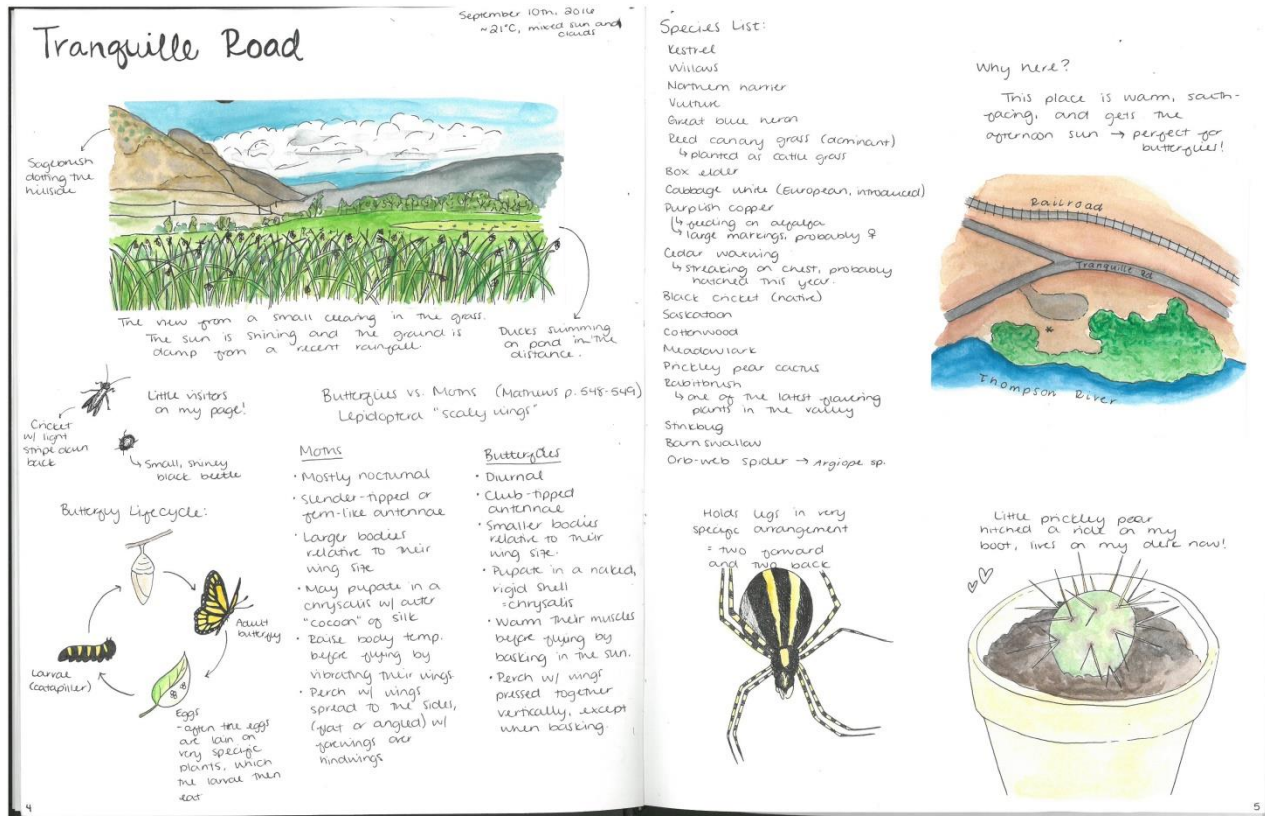 Tranquille Road
September 10th, 2016
~21°C, mixed sun and
clouds
Sagebrush
dotting the
hillside
The view from a small clearing in the grass.
The sun is shining and the ground is
damp from a recent rainfall.
Ducks swimming
on pond in the
distance.
Cricket
w/ light
stripe down
back
Little visitors
on my page!
↳ Small, shiney
black beetle
Butterflies vs. Moths (Mathews p. 548-549)
Lepidoptera "scaly wings"
Butterfly Lifecycle:
Adult
butterfly
Larvae
(catapiller)
Eggs
- often the eggs
are lain on
very specific
plants, which
the larvae then
eat
Moths
• Mostly nocturnal
• Slender-tipped or
fern-like antennae
• Larger bodies
relative to their
wing size
• May pupate in a
chrysalis w/ outer
"cocoon" of silk
• Raise body temp.
before flying by
vibrating their wings
• Perch w/ wings
spread to the sides,
(flat or angled) w/
forewings over
hindwings
Butterflies
• Diurnal
• Club-tipped
antennae
• Smaller bodies
relative to their
wing size.
• Pupate in a naked,
rigid shell
= chrysalis
• Warm their muscles
before flying by
basking in the sun.
• Perch w/ wings
pressed together
vertically, except
when basking.
4
Species List:
Kestrel
Willows
Northern harrier
Vulture
Great blue heron
Reed canary grass (dominant)
↳ planted as cattle grass
Box elder
Cabbage white (European, introduced)
Purplish copper
↳ feeding on alfalfa
↳ large markings, probably ♀
Cedar waxwing
↳ streaking on chest, probably
hatched this year.
Black cricket (native)
Saskatoon
Cottonwood
Meadowlark
Prickley pear cactus
Rabitbrush
↳ one of the latest flowering
plants in the valley
Stinkbug
Barn swallow
Orb-web spider → Argiope sp.
Why here?
This place is warm, south-
facing, and gets the
afternoon sun → perfect for
butterflies!
Railroad
Tranquille Rd
*
Thompson River
Holds legs in very
specific arrangement
= two forward
and two back
Little prickley pear
hitched a ride on my
boot, lives on my desk now!
5